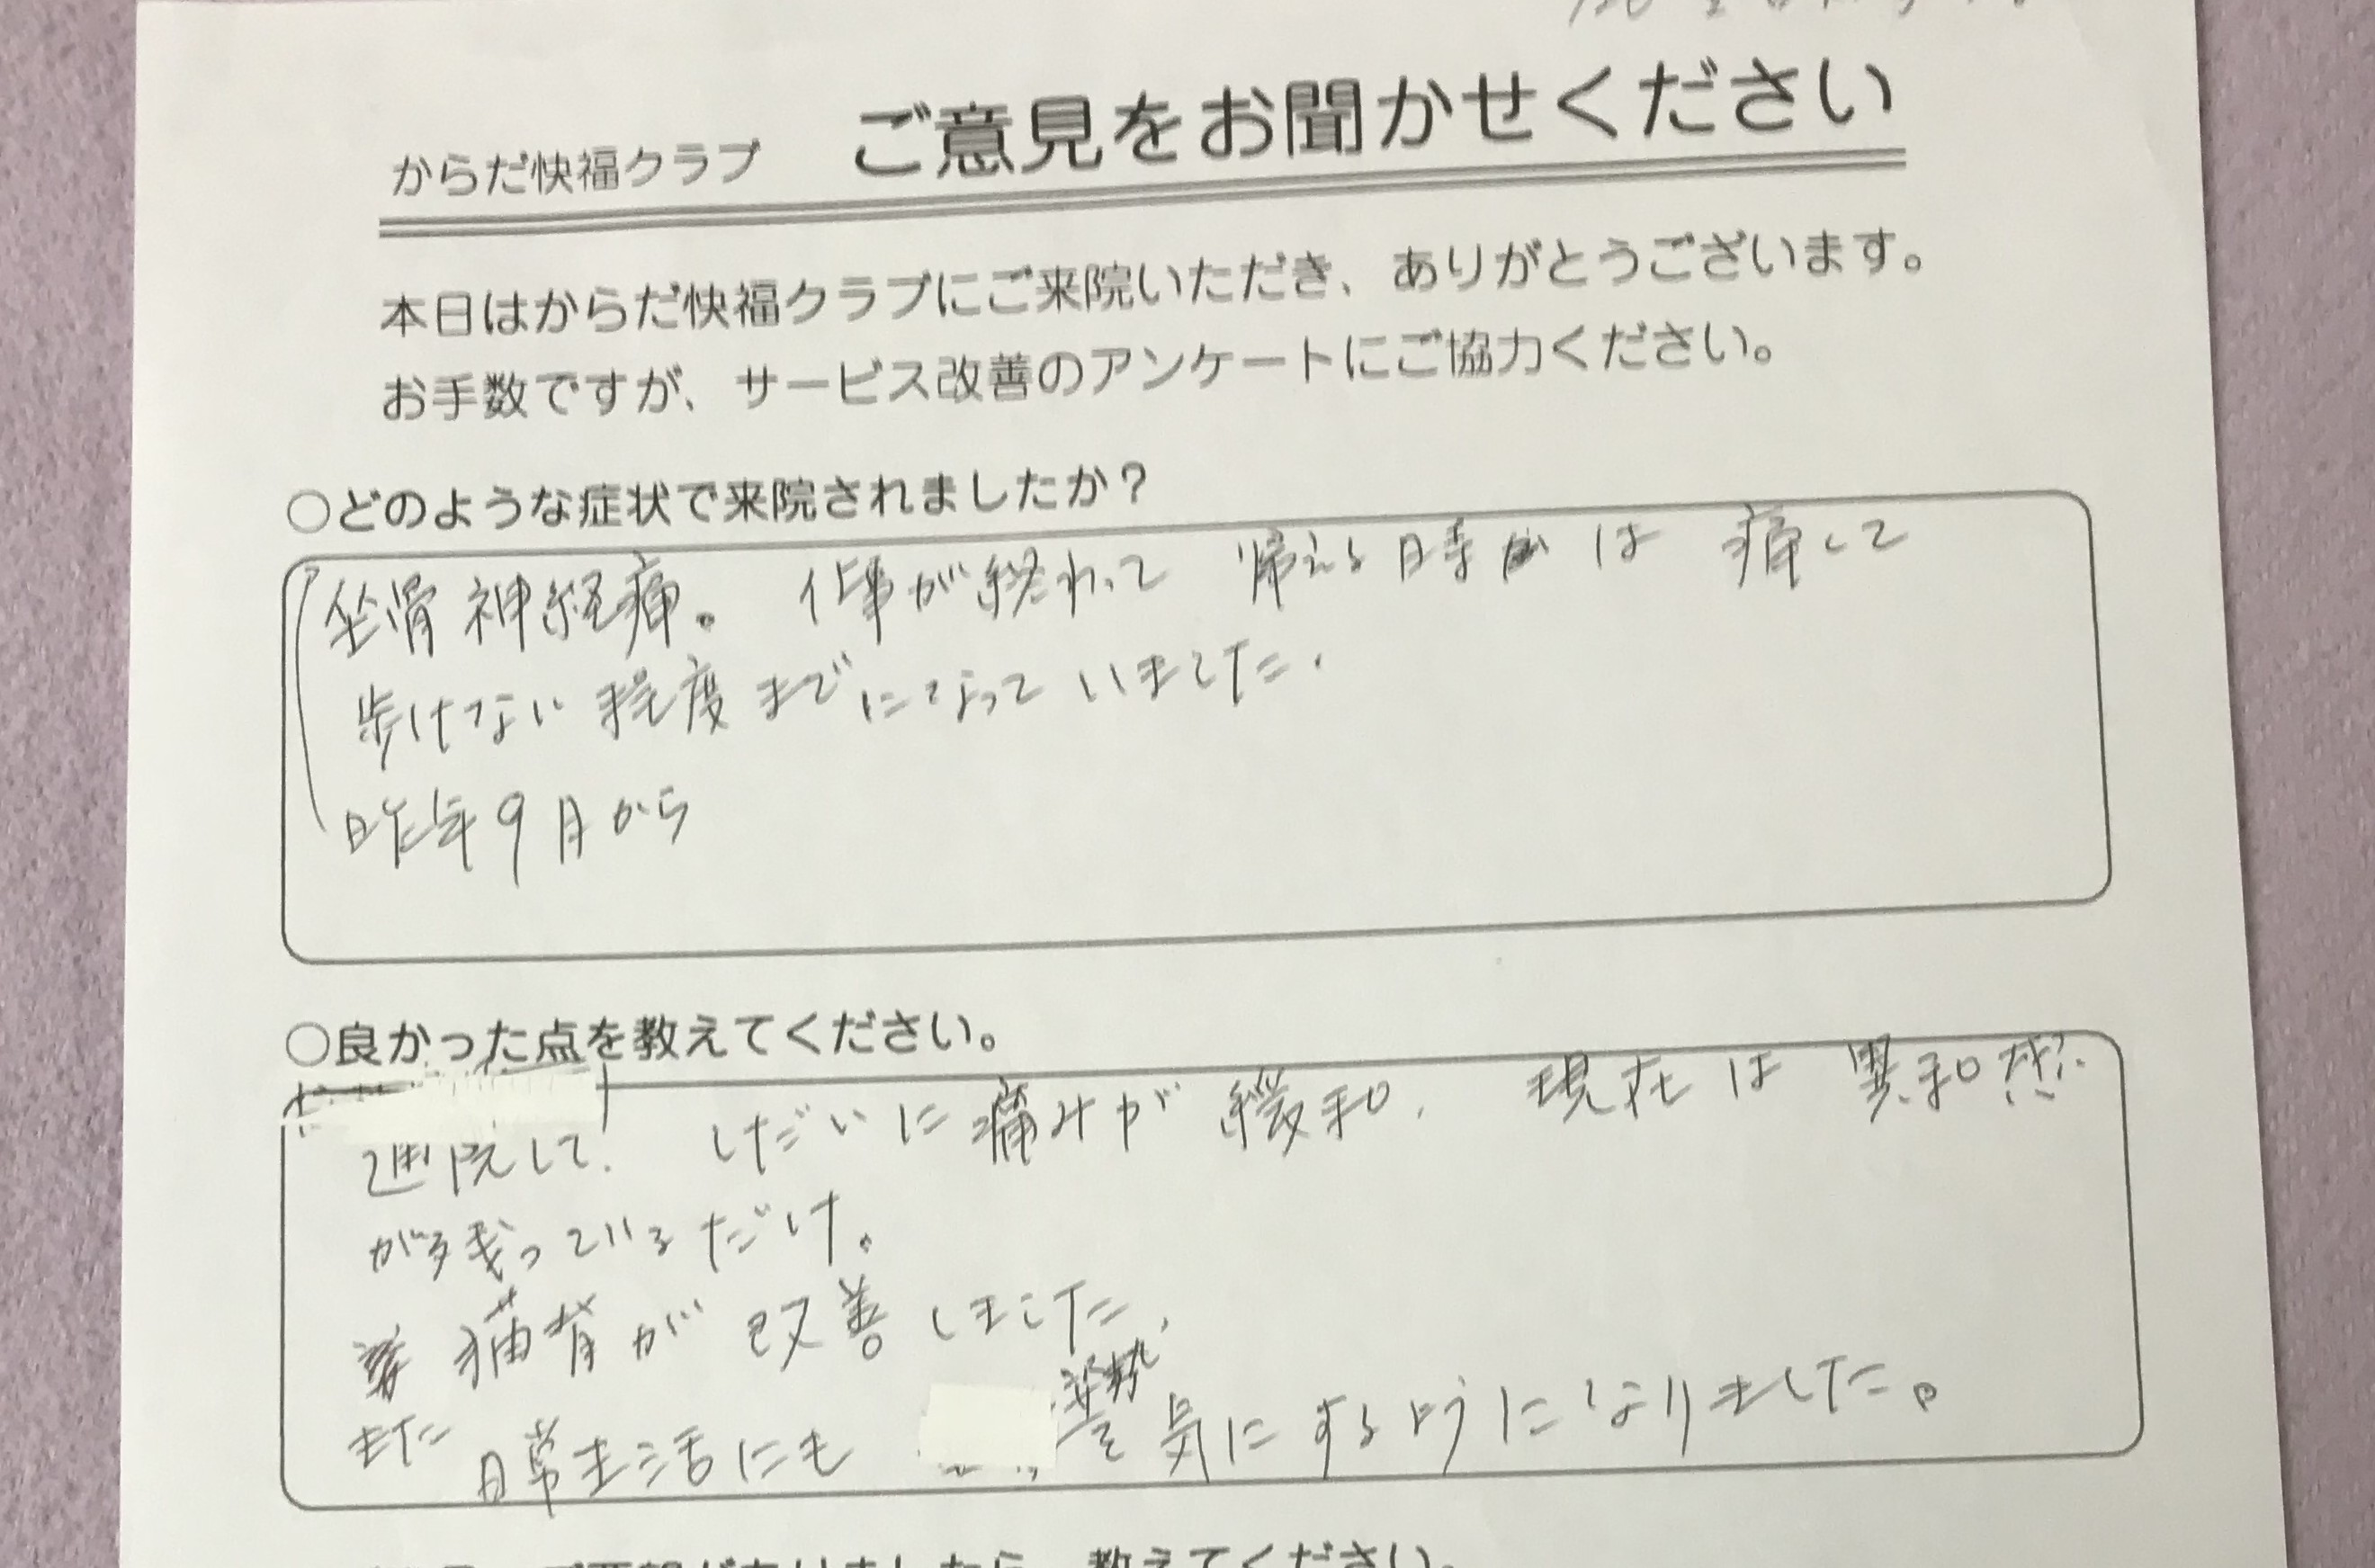 からだ快福クラブ ご意見をお聞かせください
本日はからだ快福クラブにご来院いただき、ありがとうございます。
お手数ですが、サービス改善のアンケートにご協力ください。
○どのような症状で来院されましたか？
坐骨神経痛。 仕事が終わって 帰える時は 痛くて
歩けない程度までになっていました.
昨年9月から
○良かった点を教えてください。
通院して. しだいに痛みが緩和. 現在は異和感
が残っているだけ。
猫背が改善しました.
また 日常生活にも 姿勢を気にするようになりました。
教えてください。